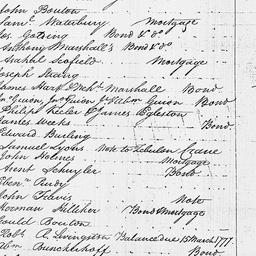 John Bouton
Saml. Waterbury Mortgage
Jos. Gotsing Bond & do
Anthony Marshall's Bond & do
Anahel Scofield Mortgage
Joseph Strang
James Hart & Michl. Marshall Bond
Guion, Guion & Guion Bond
Philip Keeler & James Egleston
Charles Weeks Bond
Edward Burling
Samuel Lyons Note to Zebulon Crane
John Holmes Mortgage
Brent Schuyler Bond
Eben. Purdy
John Travis Note
Herman Hilliker Bond & Mortgage
Gould Bouton
Robt. R. Livingston Balance due 15 March 1771
Abm. Bunckerhoff Bond